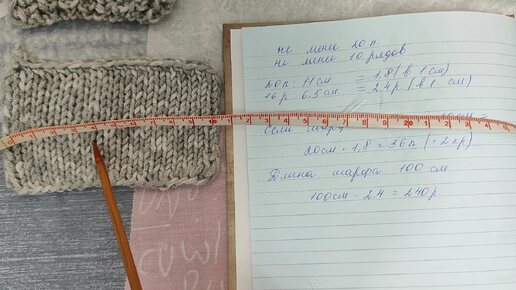 не менее 20 п
не менее 10 рядов
20п : 11 см = 1.8 ( в 1 см)
16 р 6.5 см = 2.4 р ( в 1 см)
Если
20см · 1,8 = 36 п ( + 2 кр)
Длина шарфа 100 см
100см · 2.4 = 240 р